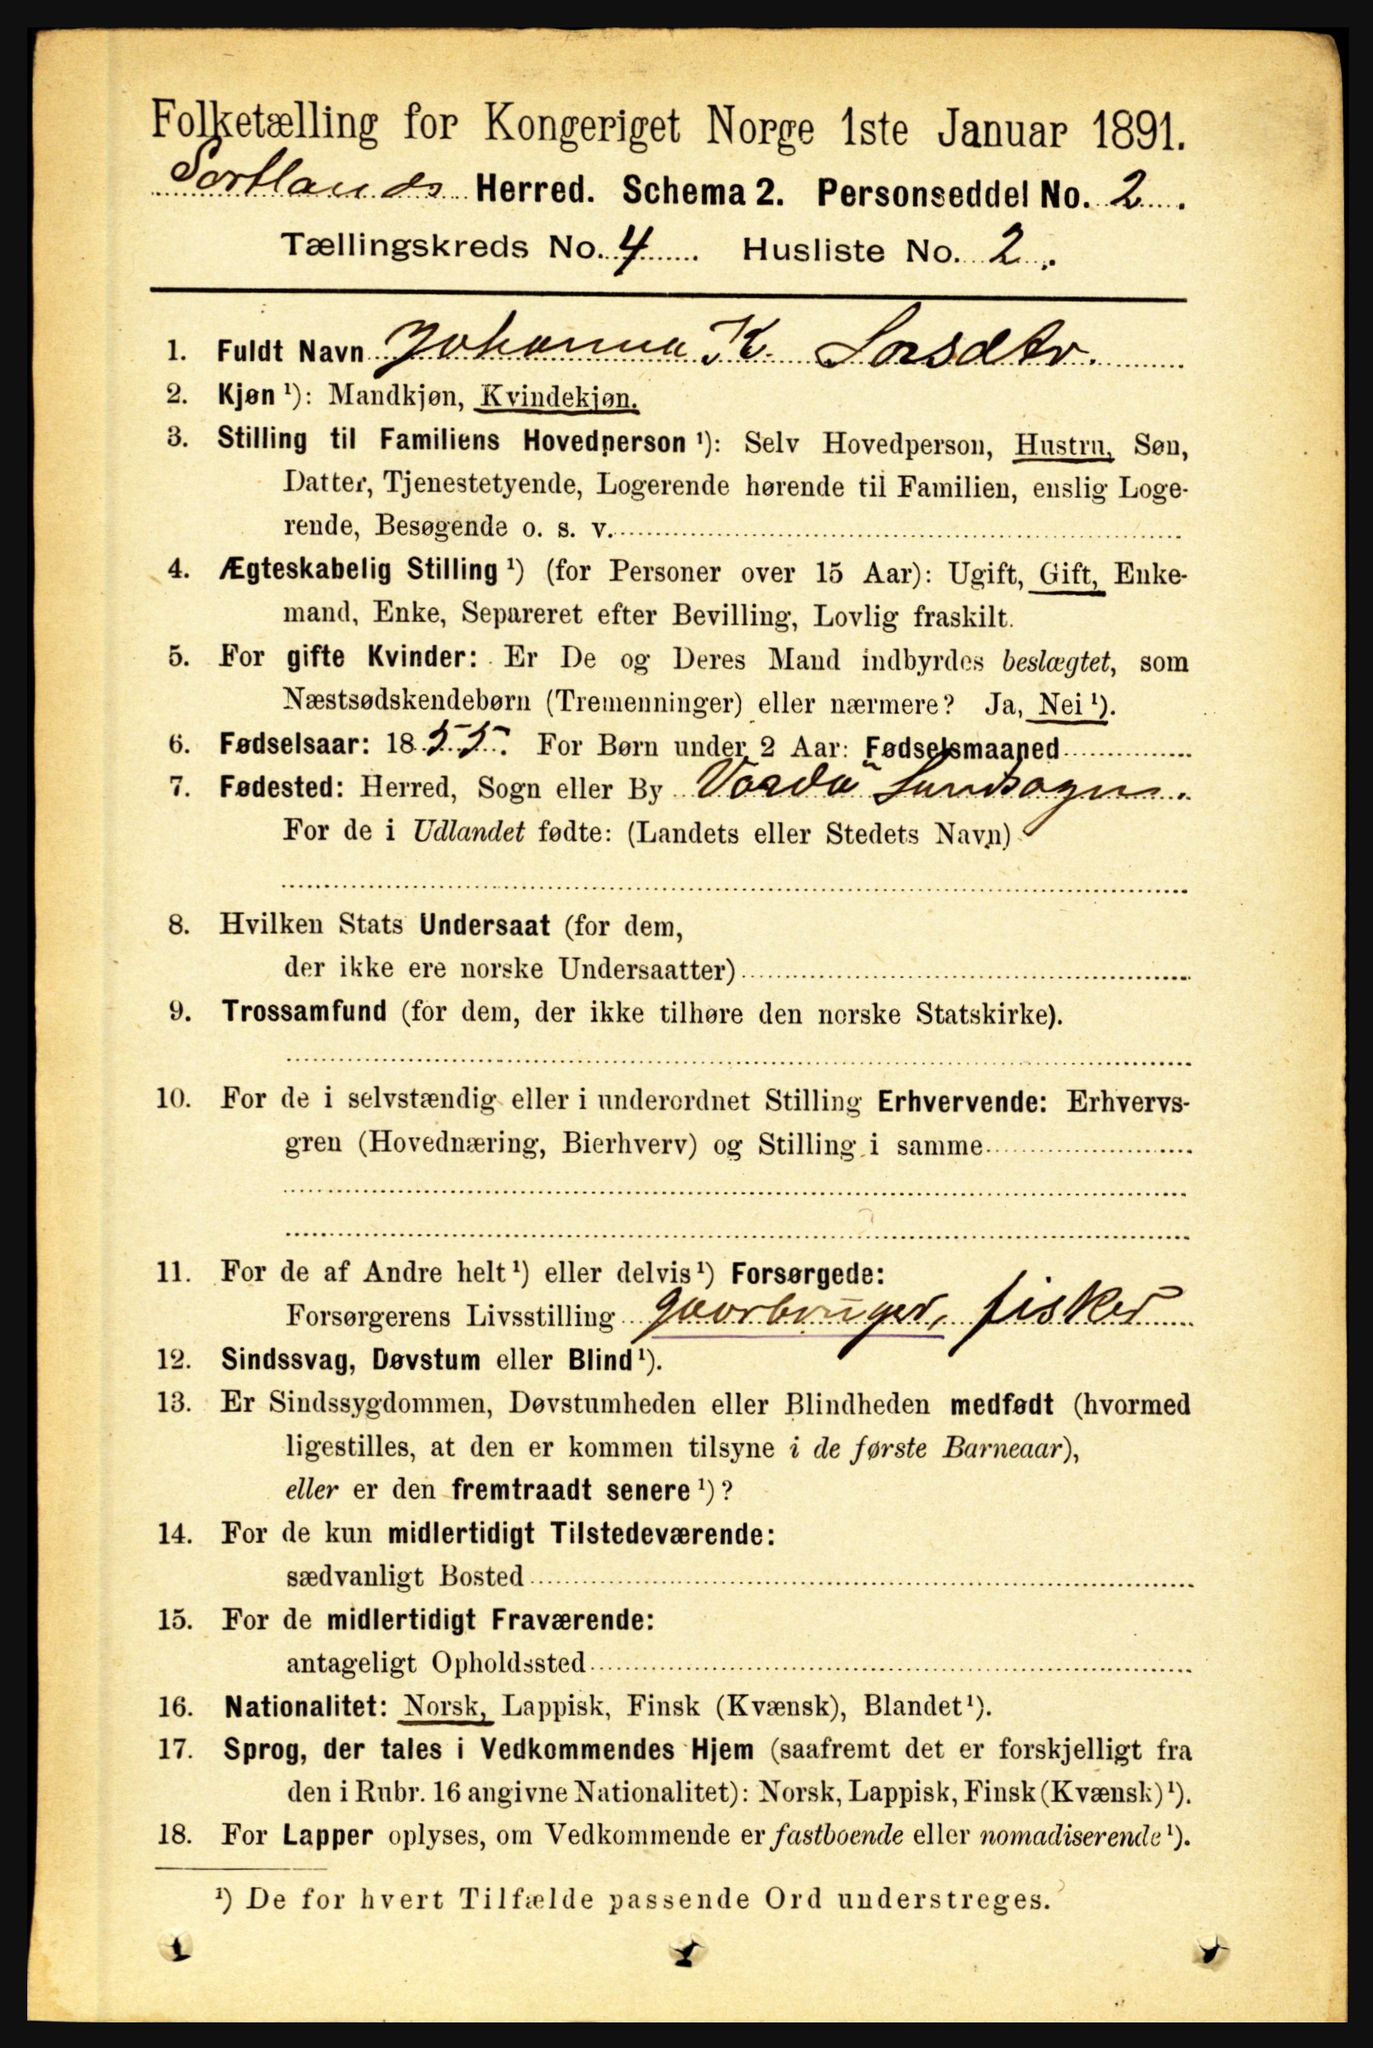 Folketælling for Kongeriget Norge 1ste Januar 1891.
Sortlands Herred. Schema 2. Personseddel No. 2.
Tællingskreds No. 4 Husliste No. 2.
1. Fuldt Navn Johanna K.
2. Kjøn ¹): Mandkjøn, Kvindekjøn.
3. Stilling til Familiens Hovedperson ¹): Selv Hovedperson, Hustru, Søn,
Datter, Tjenestetyende, Logerende hørende til Familien, enslig Loge-
rende, Besøgende o. s. v.
4. Ægteskabelig Stilling ¹) (for Personer over 15 Aar): Ugift, Gift, Enke-
mand, Enke, Separeret efter Bevilling, Lovlig fraskilt.
5. For gifte Kvinder: Er De og Deres Mand indbyrdes beslægtet, som
Næstsødskendebørn (Tremenninger) eller nærmere? Ja, Nei ¹).
6. Fødselsaar: 1855. For Børn under 2 Aar: Fødselsmaaned
7. Fødested: Herred, Sogn eller By
For de i Udlandet fødte: (Landets eller Stedets Navn)
8. Hvilken Stats Undersaat (for dem,
der ikke ere norske Undersaatter)
9. Trossamfund (for dem, der ikke tilhøre den norske Statskirke).
10. For de i selvstændig eller i underordnet Stilling Erhvervende: Erhvervs-
gren (Hovednæring, Bierhverv) og Stilling i samme
11. For de af Andre helt ¹) eller delvis ¹) Forsørgede:
Forsørgerens Livsstilling gaarbruger, fisker
12. Sindssvag, Døvstum eller Blind ¹).
13. Er Sindssygdommen, Døvstumheden eller Blindheden medfødt (hvormed
ligestilles, at den er kommen tilsyne i de første Barneaar),
eller er den fremtraadt senere ¹)?
14. For de kun midlertidigt Tilstedeværende:
sædvanligt Bosted
15. For de midlertidigt Fraværende:
antageligt Opholdssted
16. Nationalitet: Norsk, Lappisk, Finsk (Kvænsk), Blandet ¹).
17. Sprog, der tales i Vedkommendes Hjem (saafremt det er forskjelligt fra
den i Rubr. 16 angivne Nationalitet): Norsk, Lappisk, Finsk (Kvænsk) ¹).
18. For Lapper oplyses, om Vedkommende er fastboende eller nomadiserende ¹).
¹) De for hvert Tilfælde passende Ord understreges.